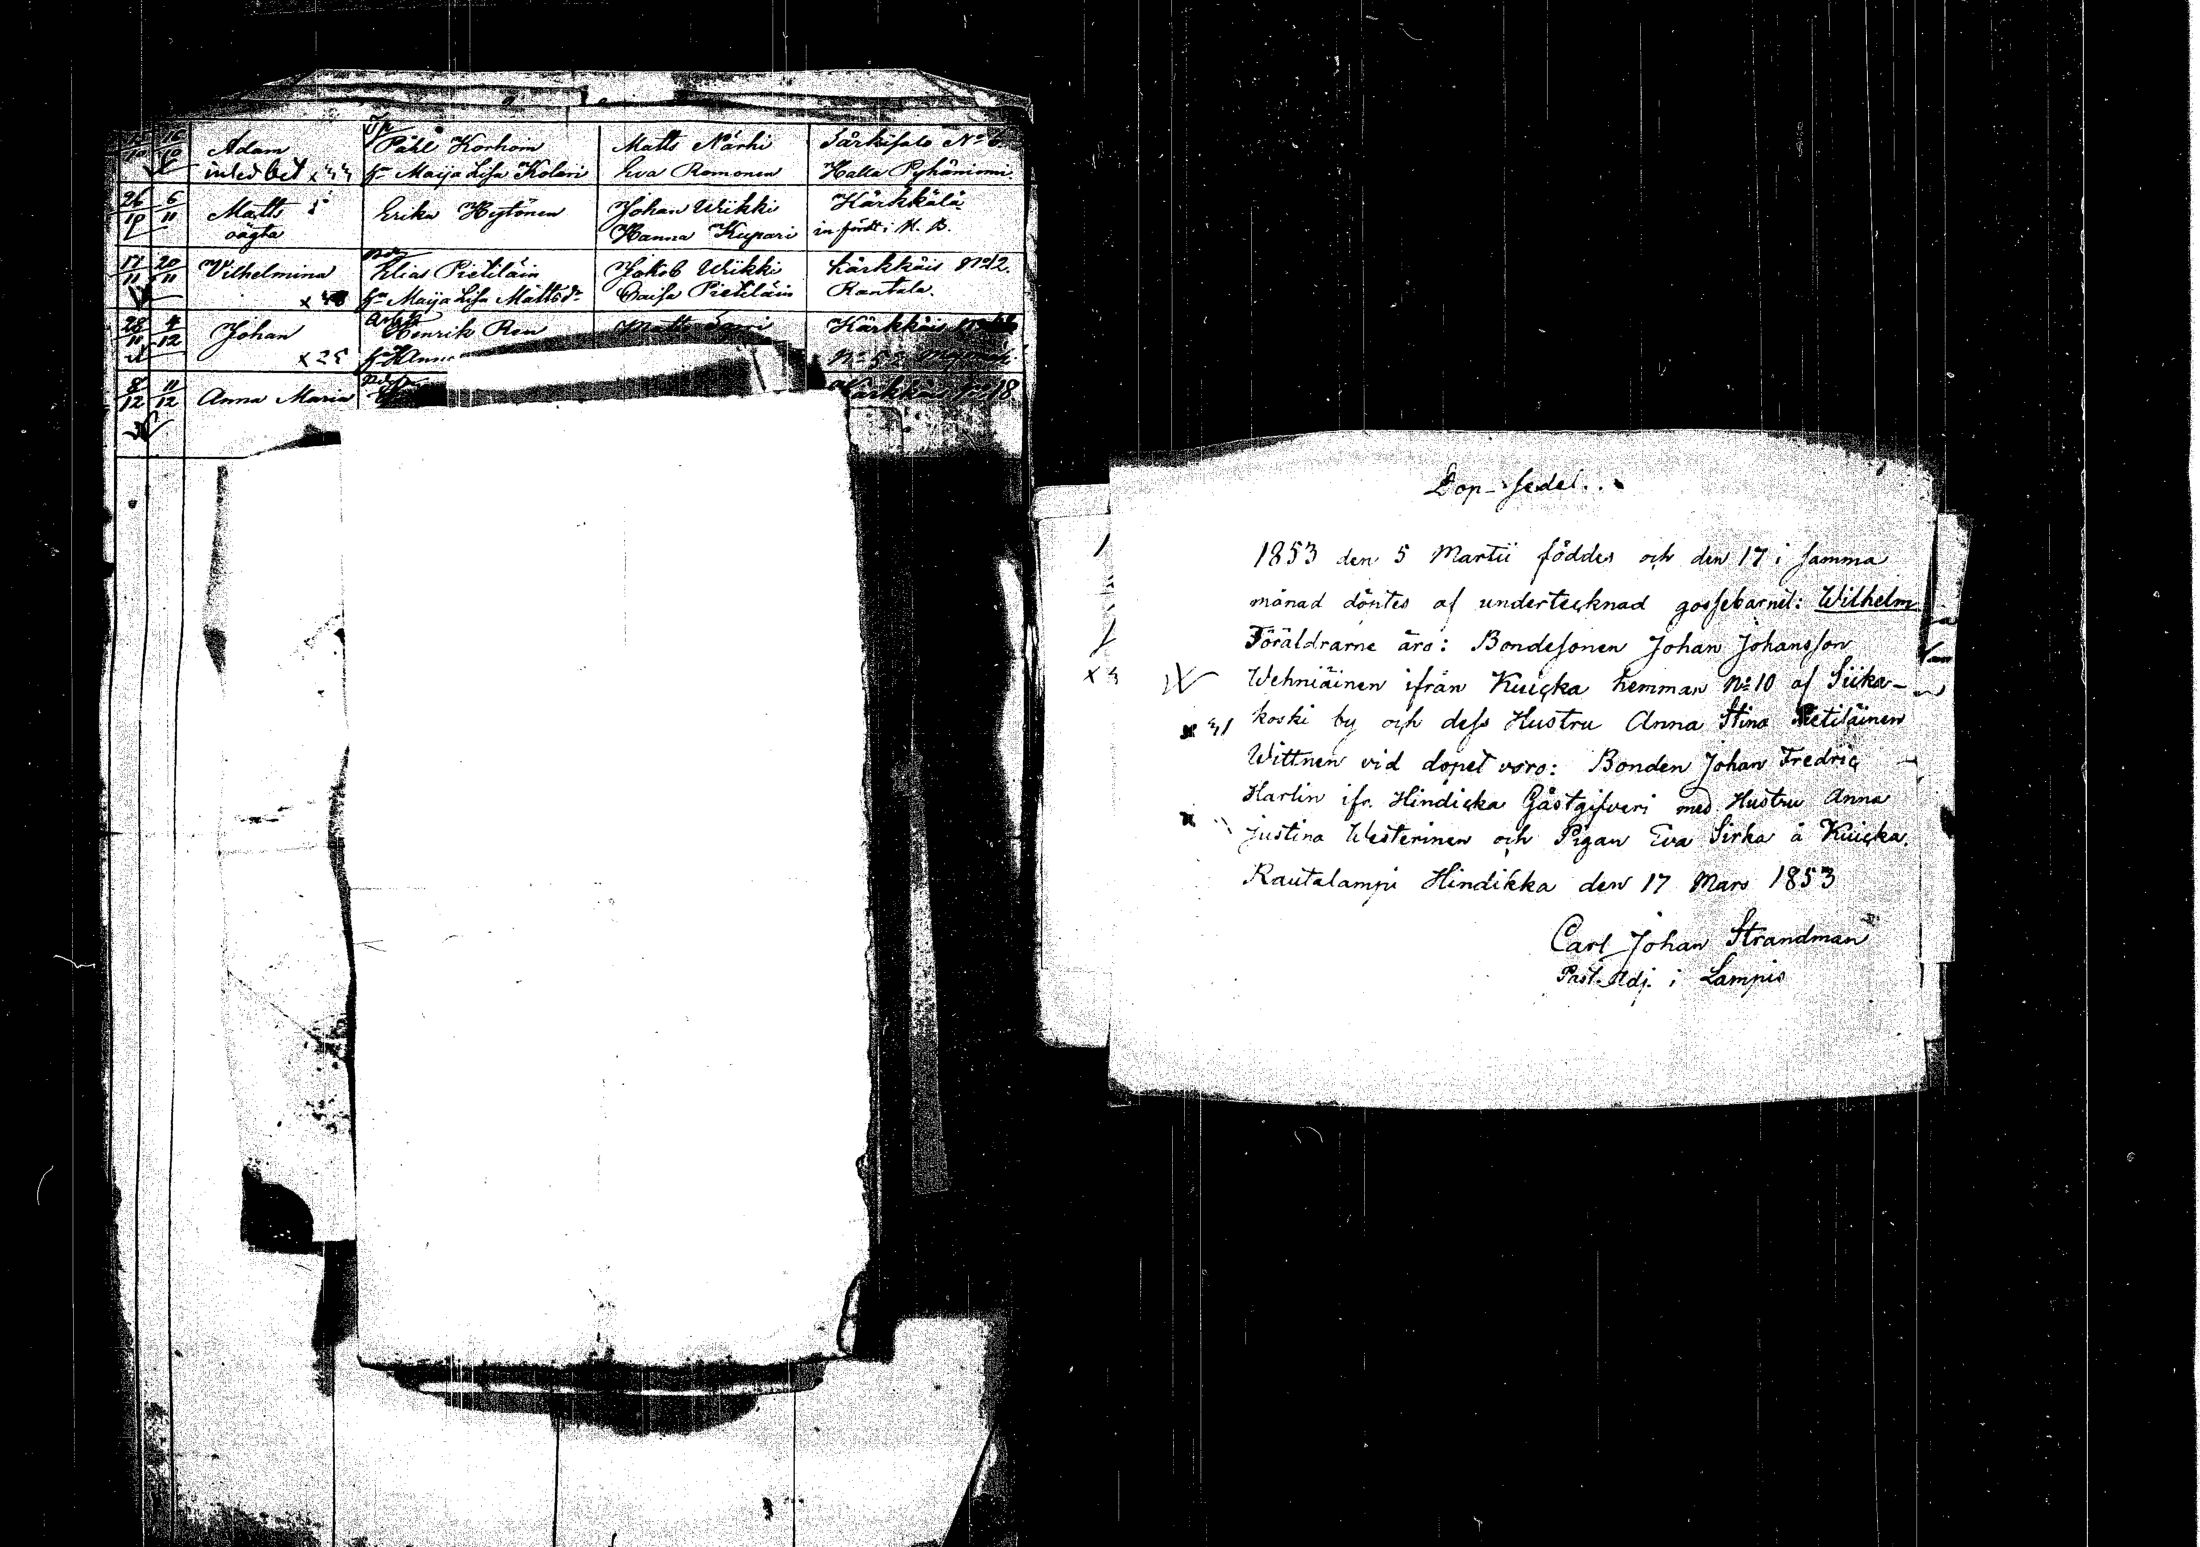 Adam
Påhl Korhoin
Matts Närhi
Särkisalo No 6
hu Maija Lisa Kolari
Eva Romonen
Halla Pyhäniemi
26/10 6/11 Matts
Erika Hytönen
Johan Wiikki
Kärkkälä
oägta
Hanna Kupari
införd i K. B.
17/11 20/11 Vilhelmina
Elias Pietiläin
Jakob Wiikki
Kärkkäis No 12.
hu Maija Lisa Mattsdr
Caisa Pietiläin
Rantala.
28/11 4/12 Johan
Henrik Ron
Kärkkäis
x 25
8/12 11/12 Anna Maria
Kärkkäis No 18
Dop-Sedel.
1853 den 5 Martii föddes och den 17 i samma
månad döptes af undertecknad gossebarnet: Wilhelm
Föräldrarne äro: Bondesonen Johan Johansson
Wehniäinen ifrån Kuicka hemman No 10 af Siika-
koski by och dess Hustru Anna Stina Pietiläinen
Wittnen vid dopet voro: Bonden Johan Fredric
Harlin ifr. Hindicka Gästgifveri med Hustru Anna
Justina Westerinen och Pigan Eva Sirka å Kuicka.
Rautalampi Hindikka den 17 Mars 1853
Carl Johan Strandman
Past. Adj. i Lampis